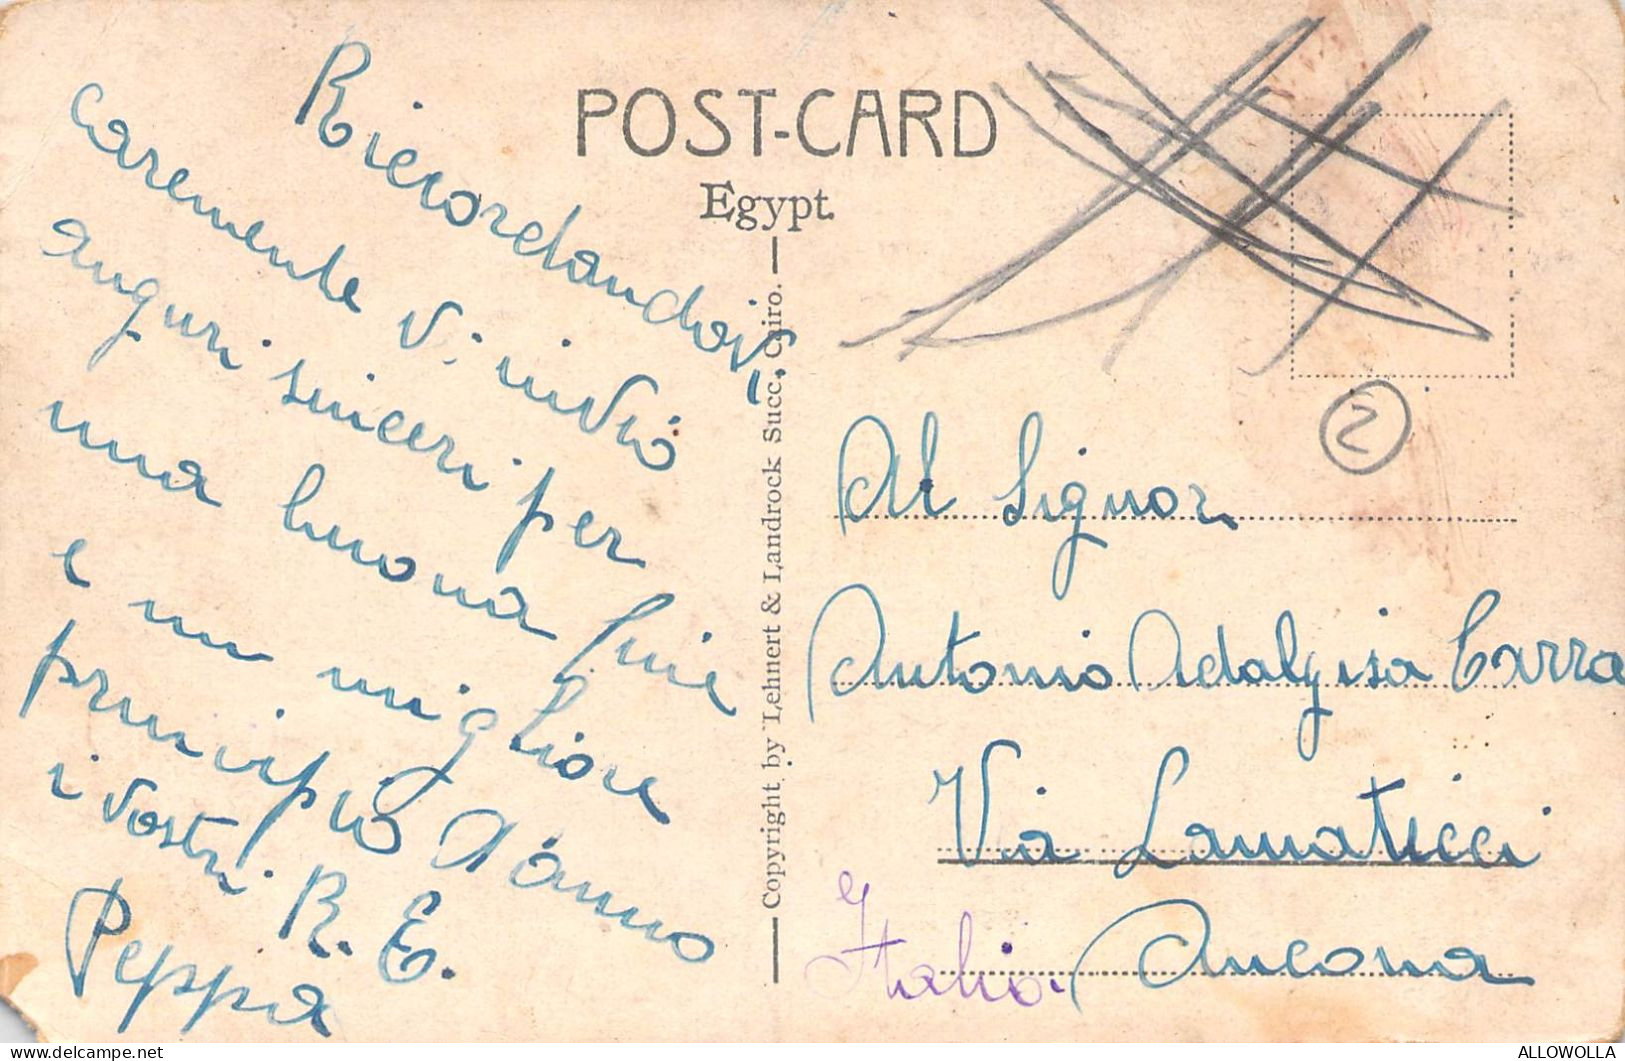 POST-CARD
Egypt.
Ricordandovi
caremente Vi invio
auguri sinceri per
una buona fine
e un migliore
principio d'anno
i vostri R. E.
Peppa
Copyright by Lehnert & Landrock Succ., Cairo.
2
Al Signor
Antonio Adalgisa Carra
Via Lamaticci
Ancona
Italia.
ALLOWOLLA